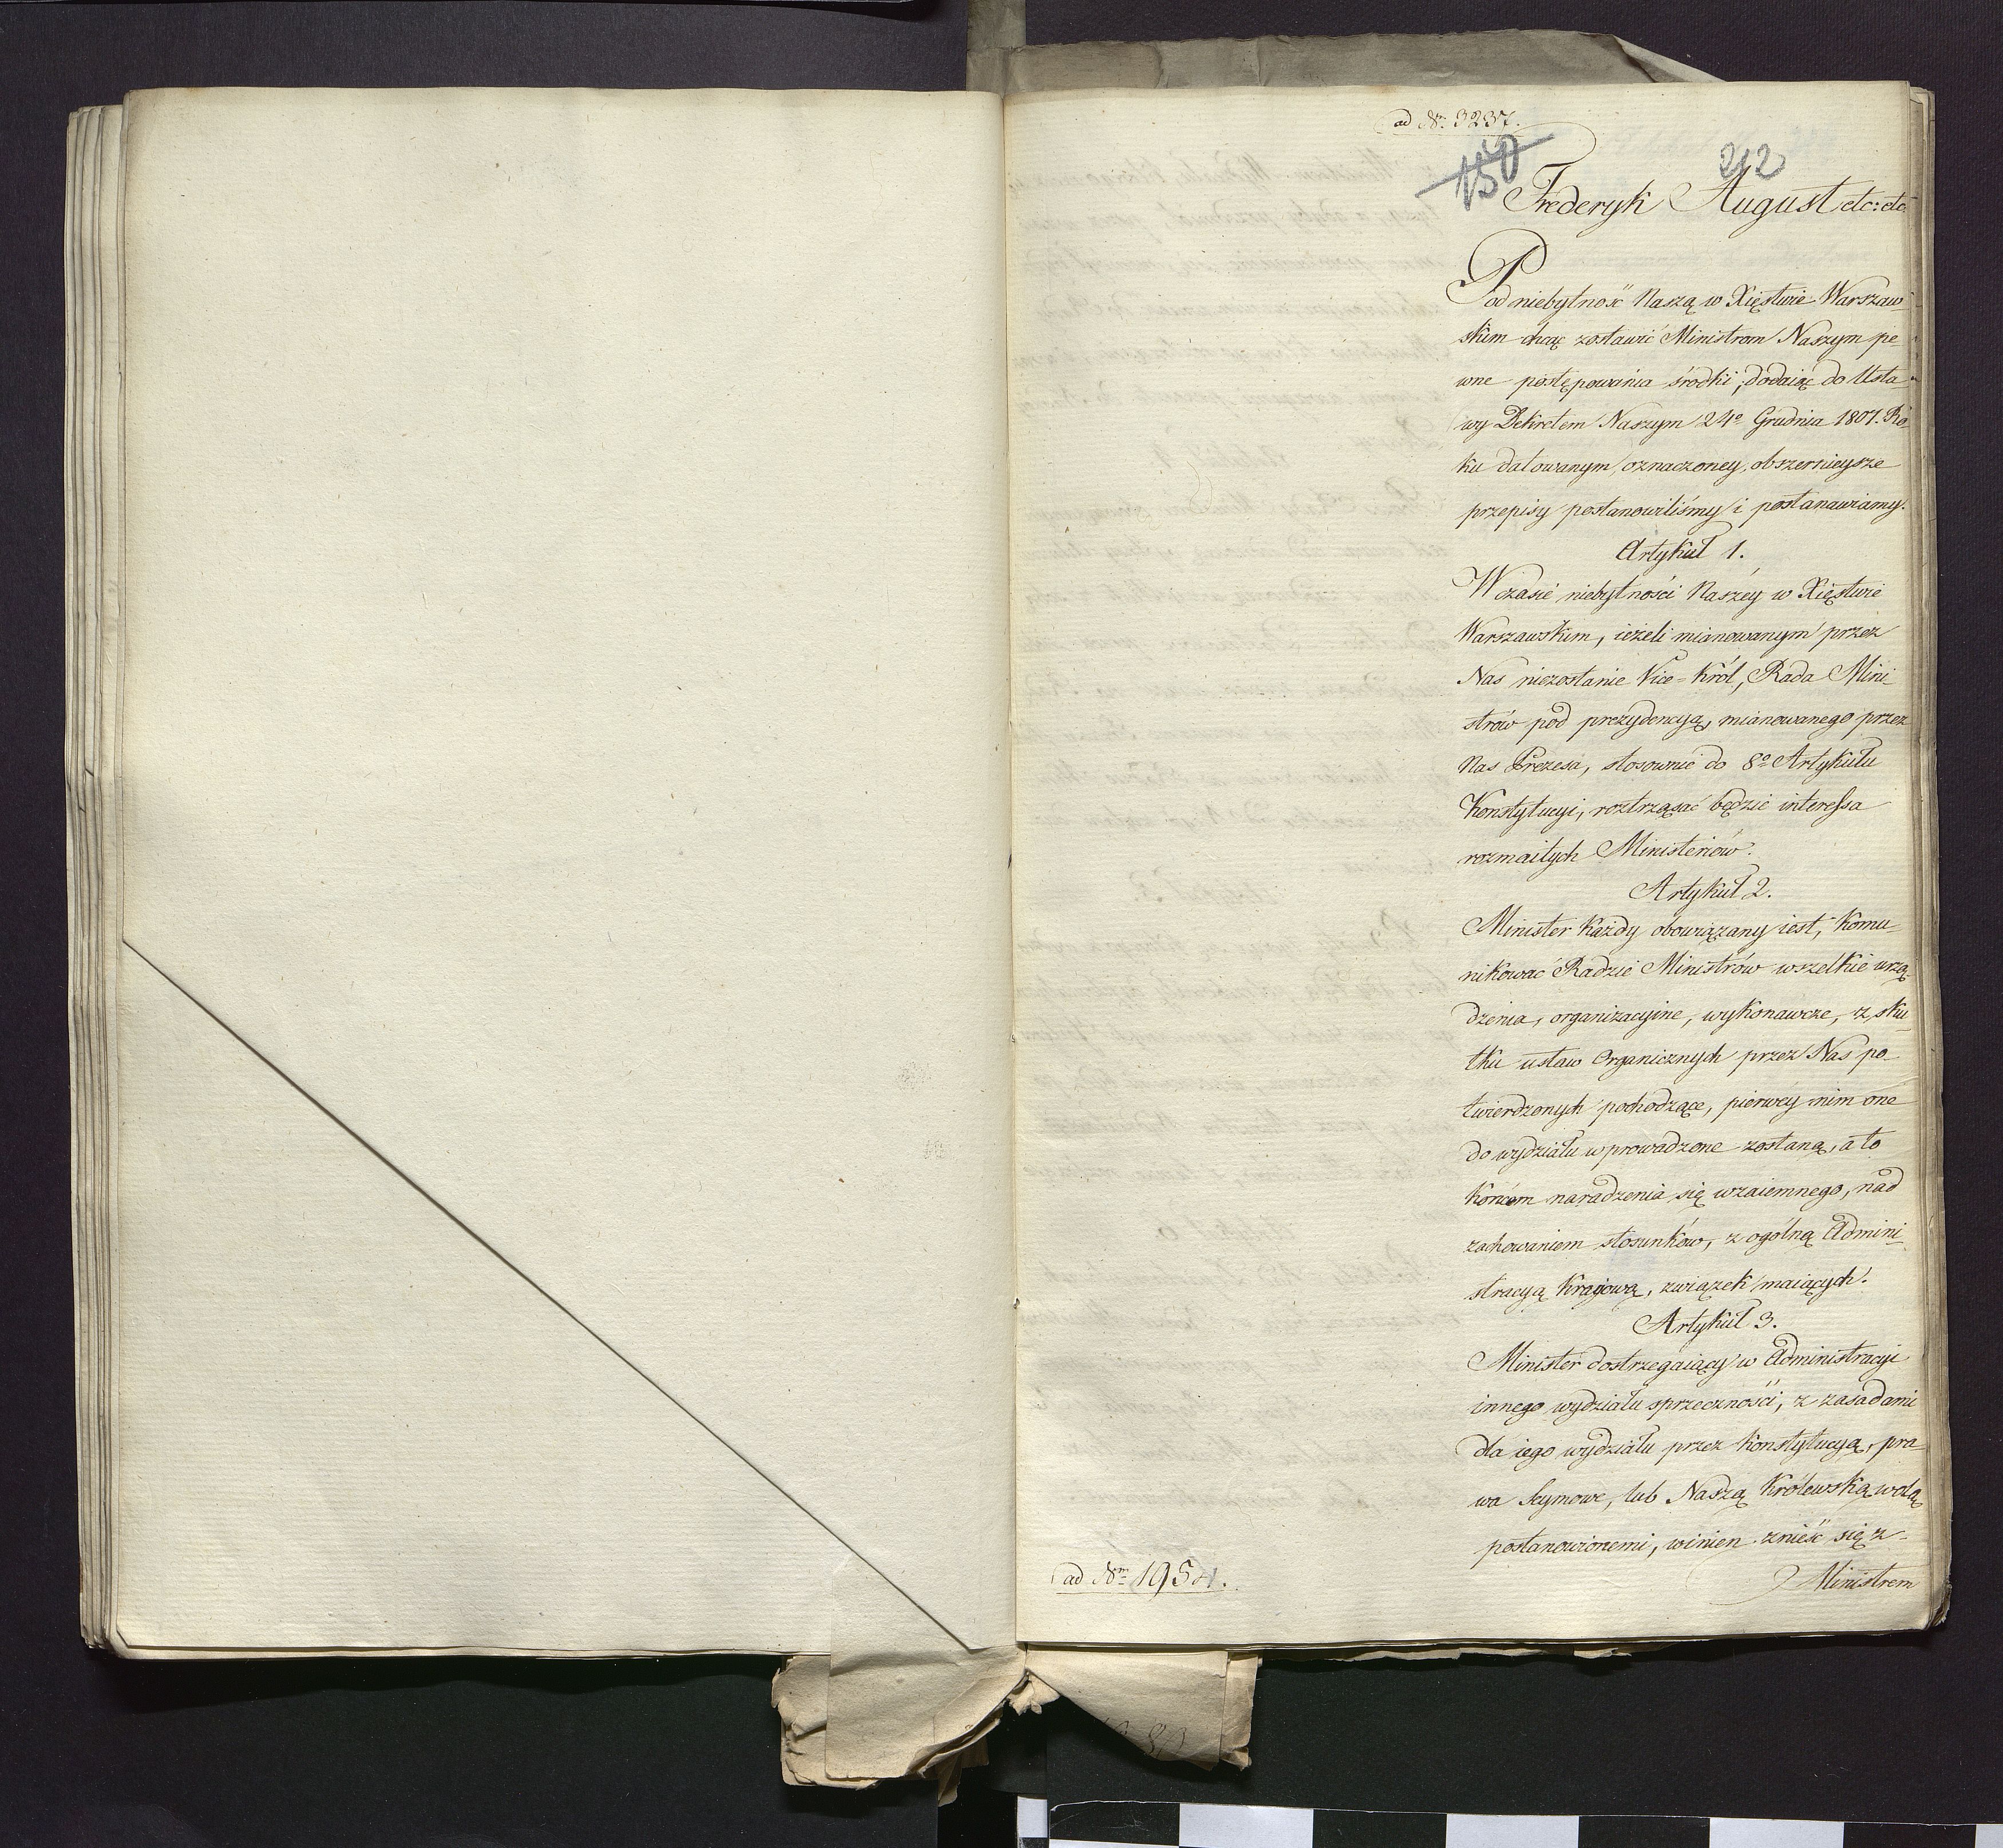 ad Nr: 3237.
150
212
Frederyk August etc: etc:
Pod niebytność Naszą w Xięstwie Warszaw-
skim chcąc zostawić Ministrom Naszym pe-
wne postępowania środki, dodaiąc do Usta-
wy Dekretem Naszym 24º Grudnia 1807. Ro-
ku datowanym oznaczoney, obszernieysze
przepisy postanowiliśmy i postanawiamy.
Artykuł 1.
W czasie niebytności Naszéy w Xięstwie
Warszawskim, ieżeli mianowanym przez
Nas niezostanie Vice=Król, Rada Mini-
strów pod prezydencyą, mianowanego przez
Nas Prezesa, stosownie do 8º Artykułu
Konstytucyi, roztrząsać będzie interessa
rozmaitych Ministeriów.
Artykuł 2.
Minister każdy obowiązany iest, komu-
nikować Radzie Ministrów wszelkie urzą-
dzenia, organizacyine, wykonawcze, z sku-
tku ustaw Organicznych przez Nas po-
twierdzonych pochodzące, pierwéy nim one
do wydziału wprowadzone zostaną, a to
końcem naradzenia się wzaiemnego, nad
zachowaniem stosunków, z ogólną Admini-
stracyą Kraiową, związek maiących.
Artykuł 3.
Minister dostrzegaiący w Administracyi
innego wydziału sprzeczności, z zasadami
dla iego wydziału przez Konstytucyą, pra-
wa Seymowe, lub Naszą Królewską wolą
postanowionemi, winien znieść się z-
Ministrem
ad Nrm 1954.